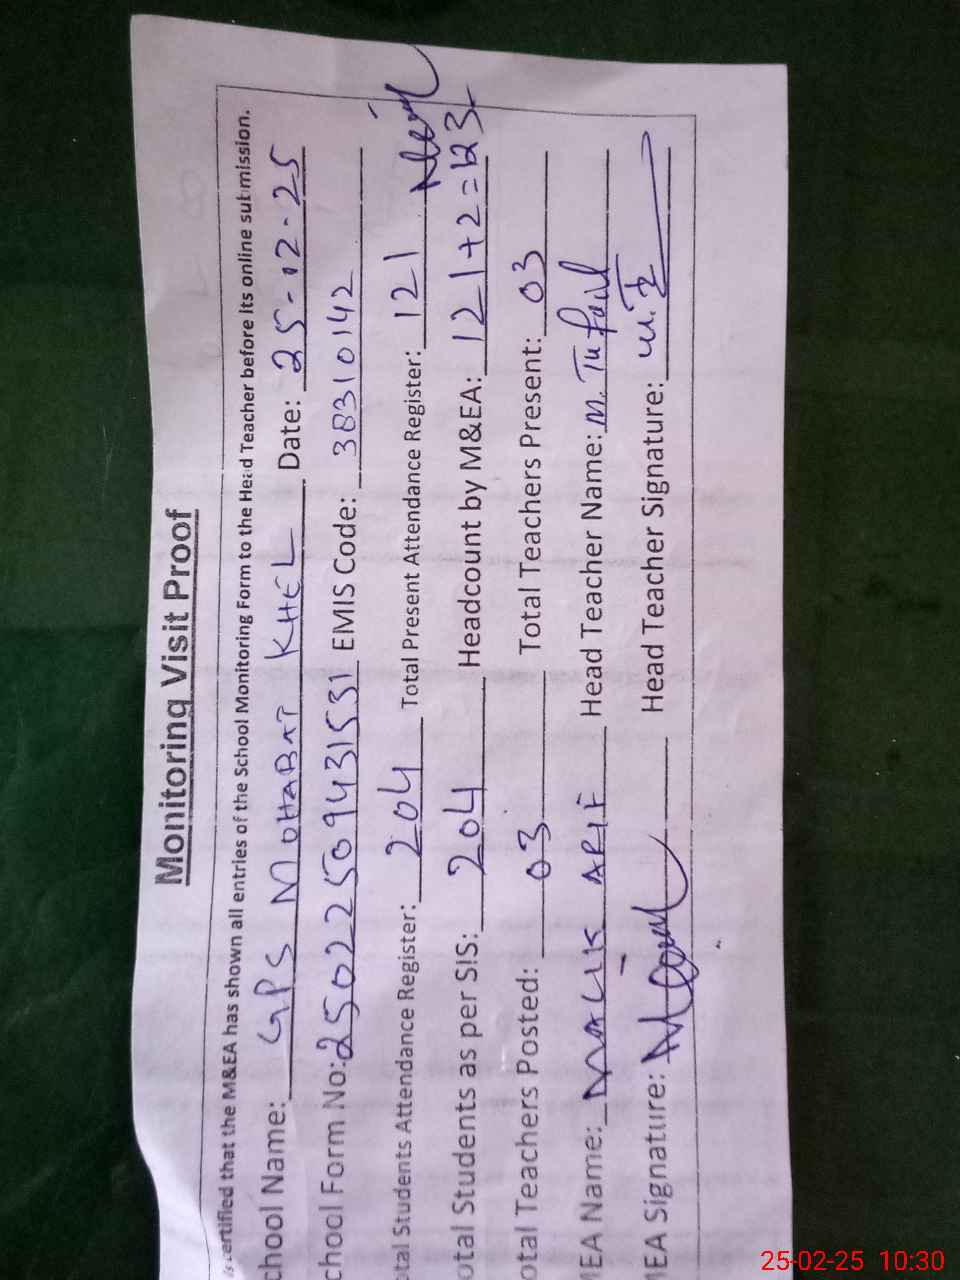 Monitoring Visit Proof
is certified that the M&EA has shown all entries of the School Monitoring Form to the Head Teacher before its online submission.
chool Name: GPS MOHABAT KHEL Date: 25-12-25
chool Form No: 25022509431531 EMIS Code: 38310142
otal Students Attendance Register: 204 Total Present Attendance Register: 121
otal Students as per SIS: 204 Headcount by M&EA: 121+2=123
otal Teachers Posted: 03 Total Teachers Present: 03
MEA Name: MALIK ARIF Head Teacher Name: M. Tufail
MEA Signature: Head Teacher Signature:
25-02-25 10:30